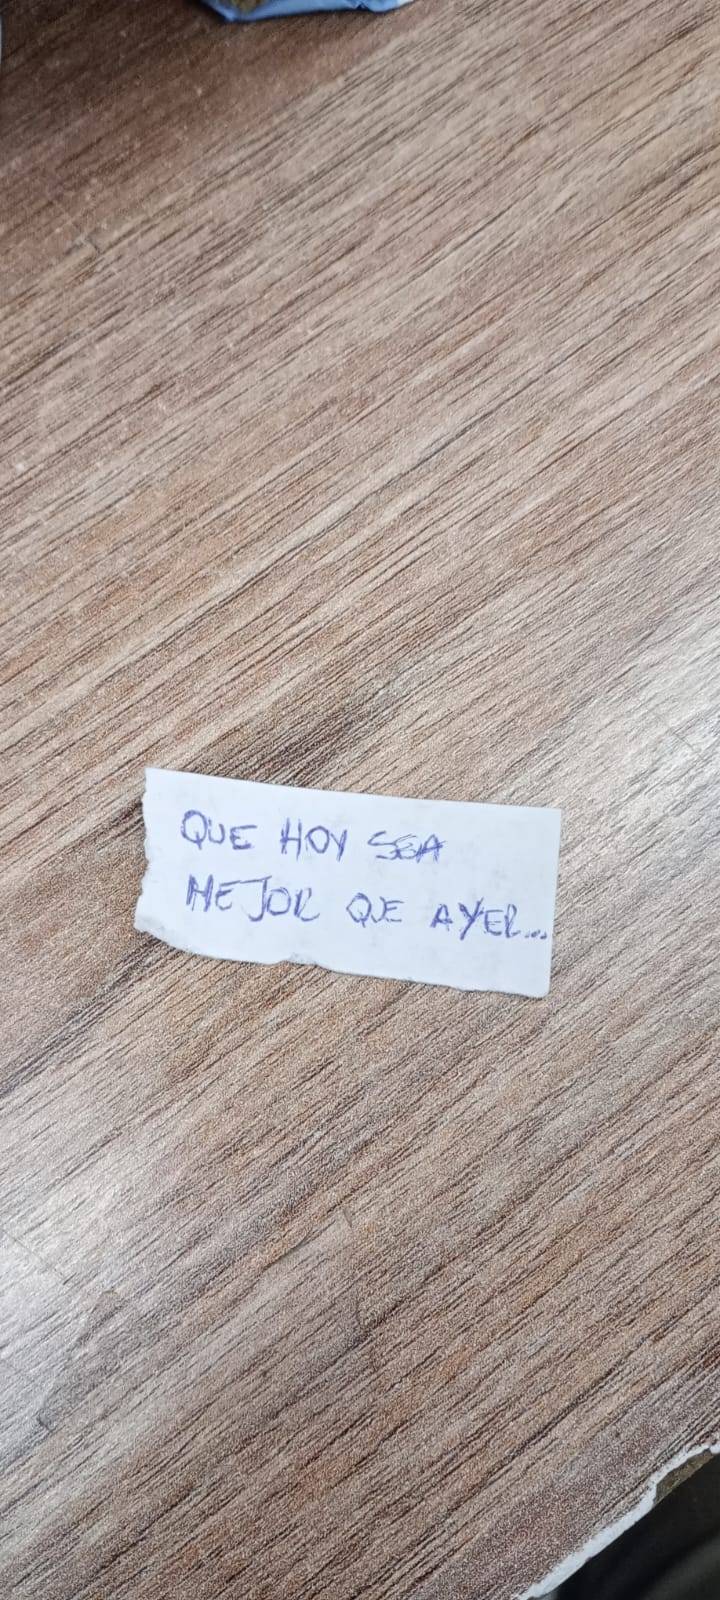 QUE HOY SEA
MEJOR QUE AYER...